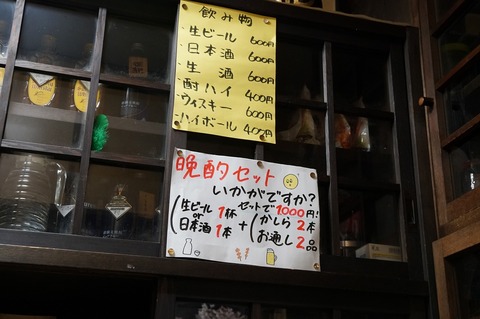 飲み物
・生ビール 600円
・日本酒 600円
・生酒 600円
・酎ハイ 400円
・ウィスキー 600円
・ハイボール 400円
晩酌セット
いかがですか?
セットで1000円!
(生ビール 1杯
or
日本酒 1本
+
(かしら 2本
お通し 2品